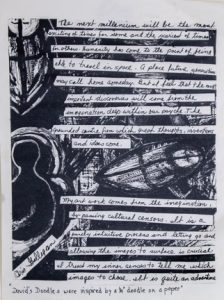 The next millenium will be the most
exciting of times for some and the scariest of times
in others. Humanity has come to the point of being
able to travel in space. A place future generations
may call home someday. But I feel that the most
important discoveries will come from the
imagination, deep within our psyche. The
from which great thoughts, inventions
and ideas come.
My art work comes from the imagination,
by passing cultural censors. It is a
purely intuitive process and letting go and
allowing the images to surface is crucial.
I trust my inner senses to tell me which
images to chose. It's quite an adventure
"David's Doodles were inspired by a doodle on a paper"